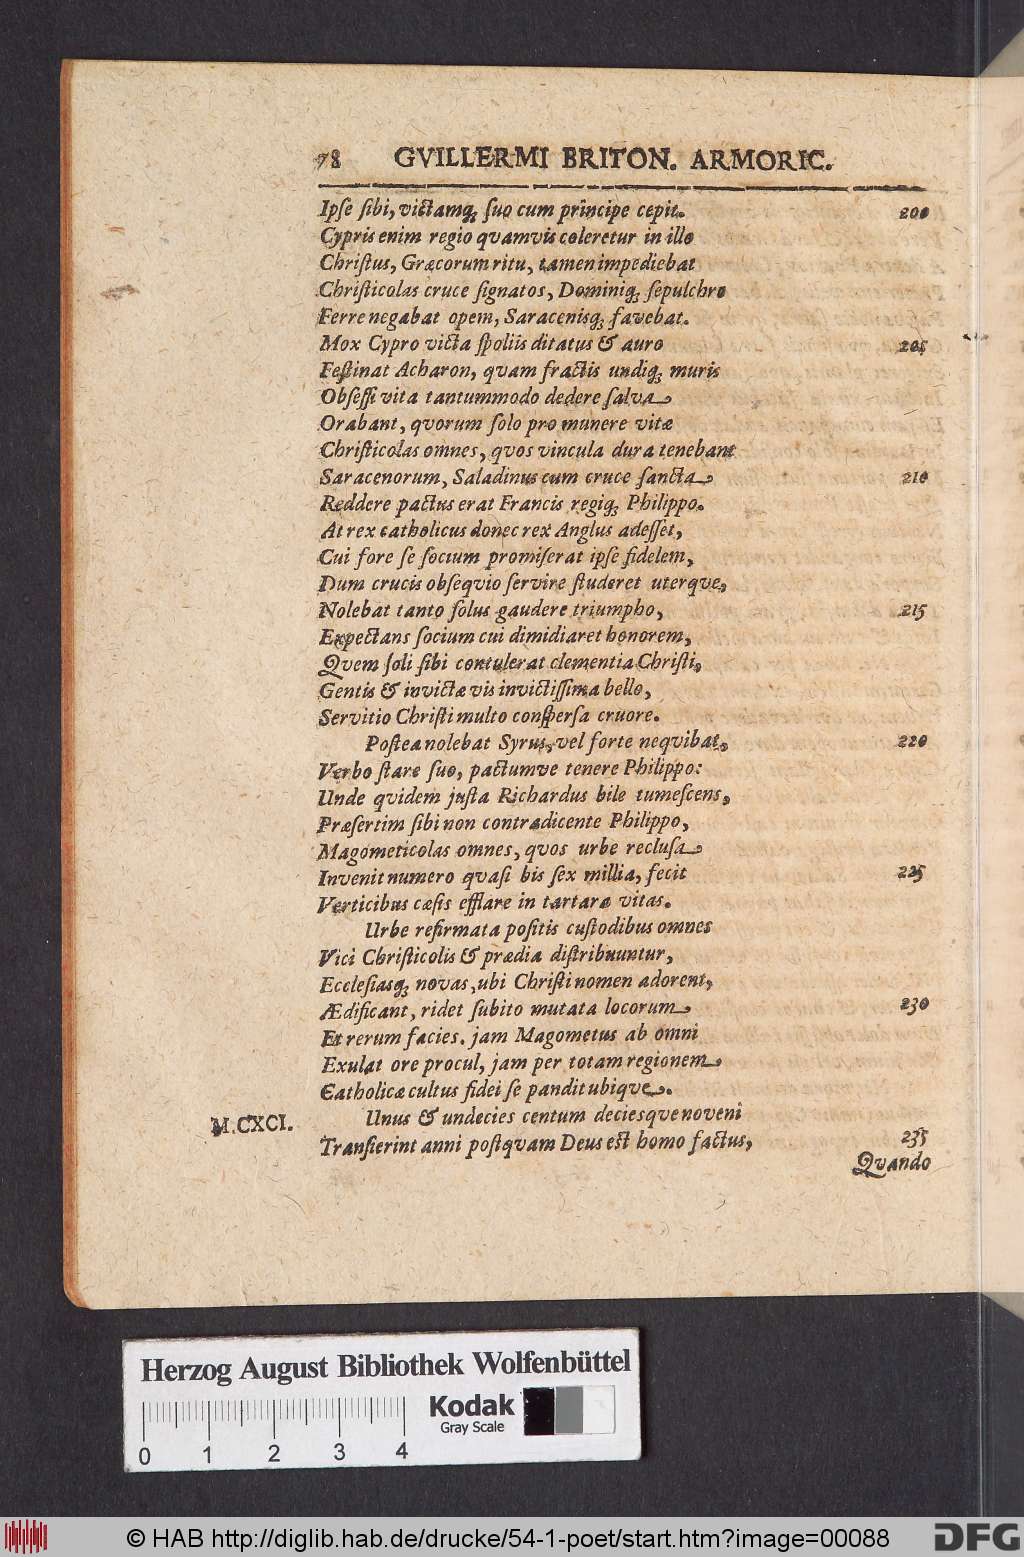 78 GVILLERMI BRITON. ARMORIC.
Ipse sibi, victamq; suo cum principe cepit. 200
Cypris enim regio qvamvis coleretur in illo
Christus, Græcorum ritu, tamen impediebat
Christicolas cruce signatos, Dominiq; sepulchro
Ferre negabat opem, Saracenisq; favebat.
Mox Cypro victa spoliis ditatus & auro 205
Festinat Acharon, qvam fractis undiq; muris
Obsessi vita tantummodo dedere salva
Orabant, qvorum solo pro munere vitæ
Christicolas omnes, qvos vincula dura tenebant
Saracenorum, Saladinus cum cruce sancta 210
Reddere pactus erat Francis regiq; Philippo.
At rex catholicus donec rex Anglus adesset,
Cui fore se socium promiserat ipse fidelem,
Dum crucis obseqvio servire studeret uterqve,
Nolebat tanto solus gaudere triumpho, 215
Expectans socium cui dimidiaret honorem,
Qvem soli sibi contulerat clementia Christi,
Gentis & invictæ vis invictissima bello,
Servitio Christi multo conspersa cruore.
Postea nolebat Syrus, vel forte neqvibat, 220
Verbo stare suo, pactumve tenere Philippo:
Unde qvidem justa Richardus bile tumescens,
Præsertim sibi non contradicente Philippo,
Magometicolas omnes, qvos urbe reclusa
Invenit numero qvasi bis sex millia, fecit 225
Verticibus cæsis efflare in tartara vitas.
Urbe refirmata positis custodibus omnes
Vici Christicolis & prædia distribuuntur,
Ecclesiasq; novas, ubi Christi nomen adorent,
Ædificant, ridet subito mutata locorum 230
Et rerum facies. jam Magometus ab omni
Exulat ore procul, jam per totam regionem
Catholicæ cultus fidei se pandit ubiqve.
Unus & undecies centum deciesqve noveni
M.CXCI.
Transierint anni postqvam Deus est homo factus, 235
Qvando
Herzog August Bibliothek Wolfenbüttel
Kodak
Gray Scale
0 1 2 3 4
© HAB http://diglib.hab.de/drucke/54-1-poet/start.htm?image=00088
DFG